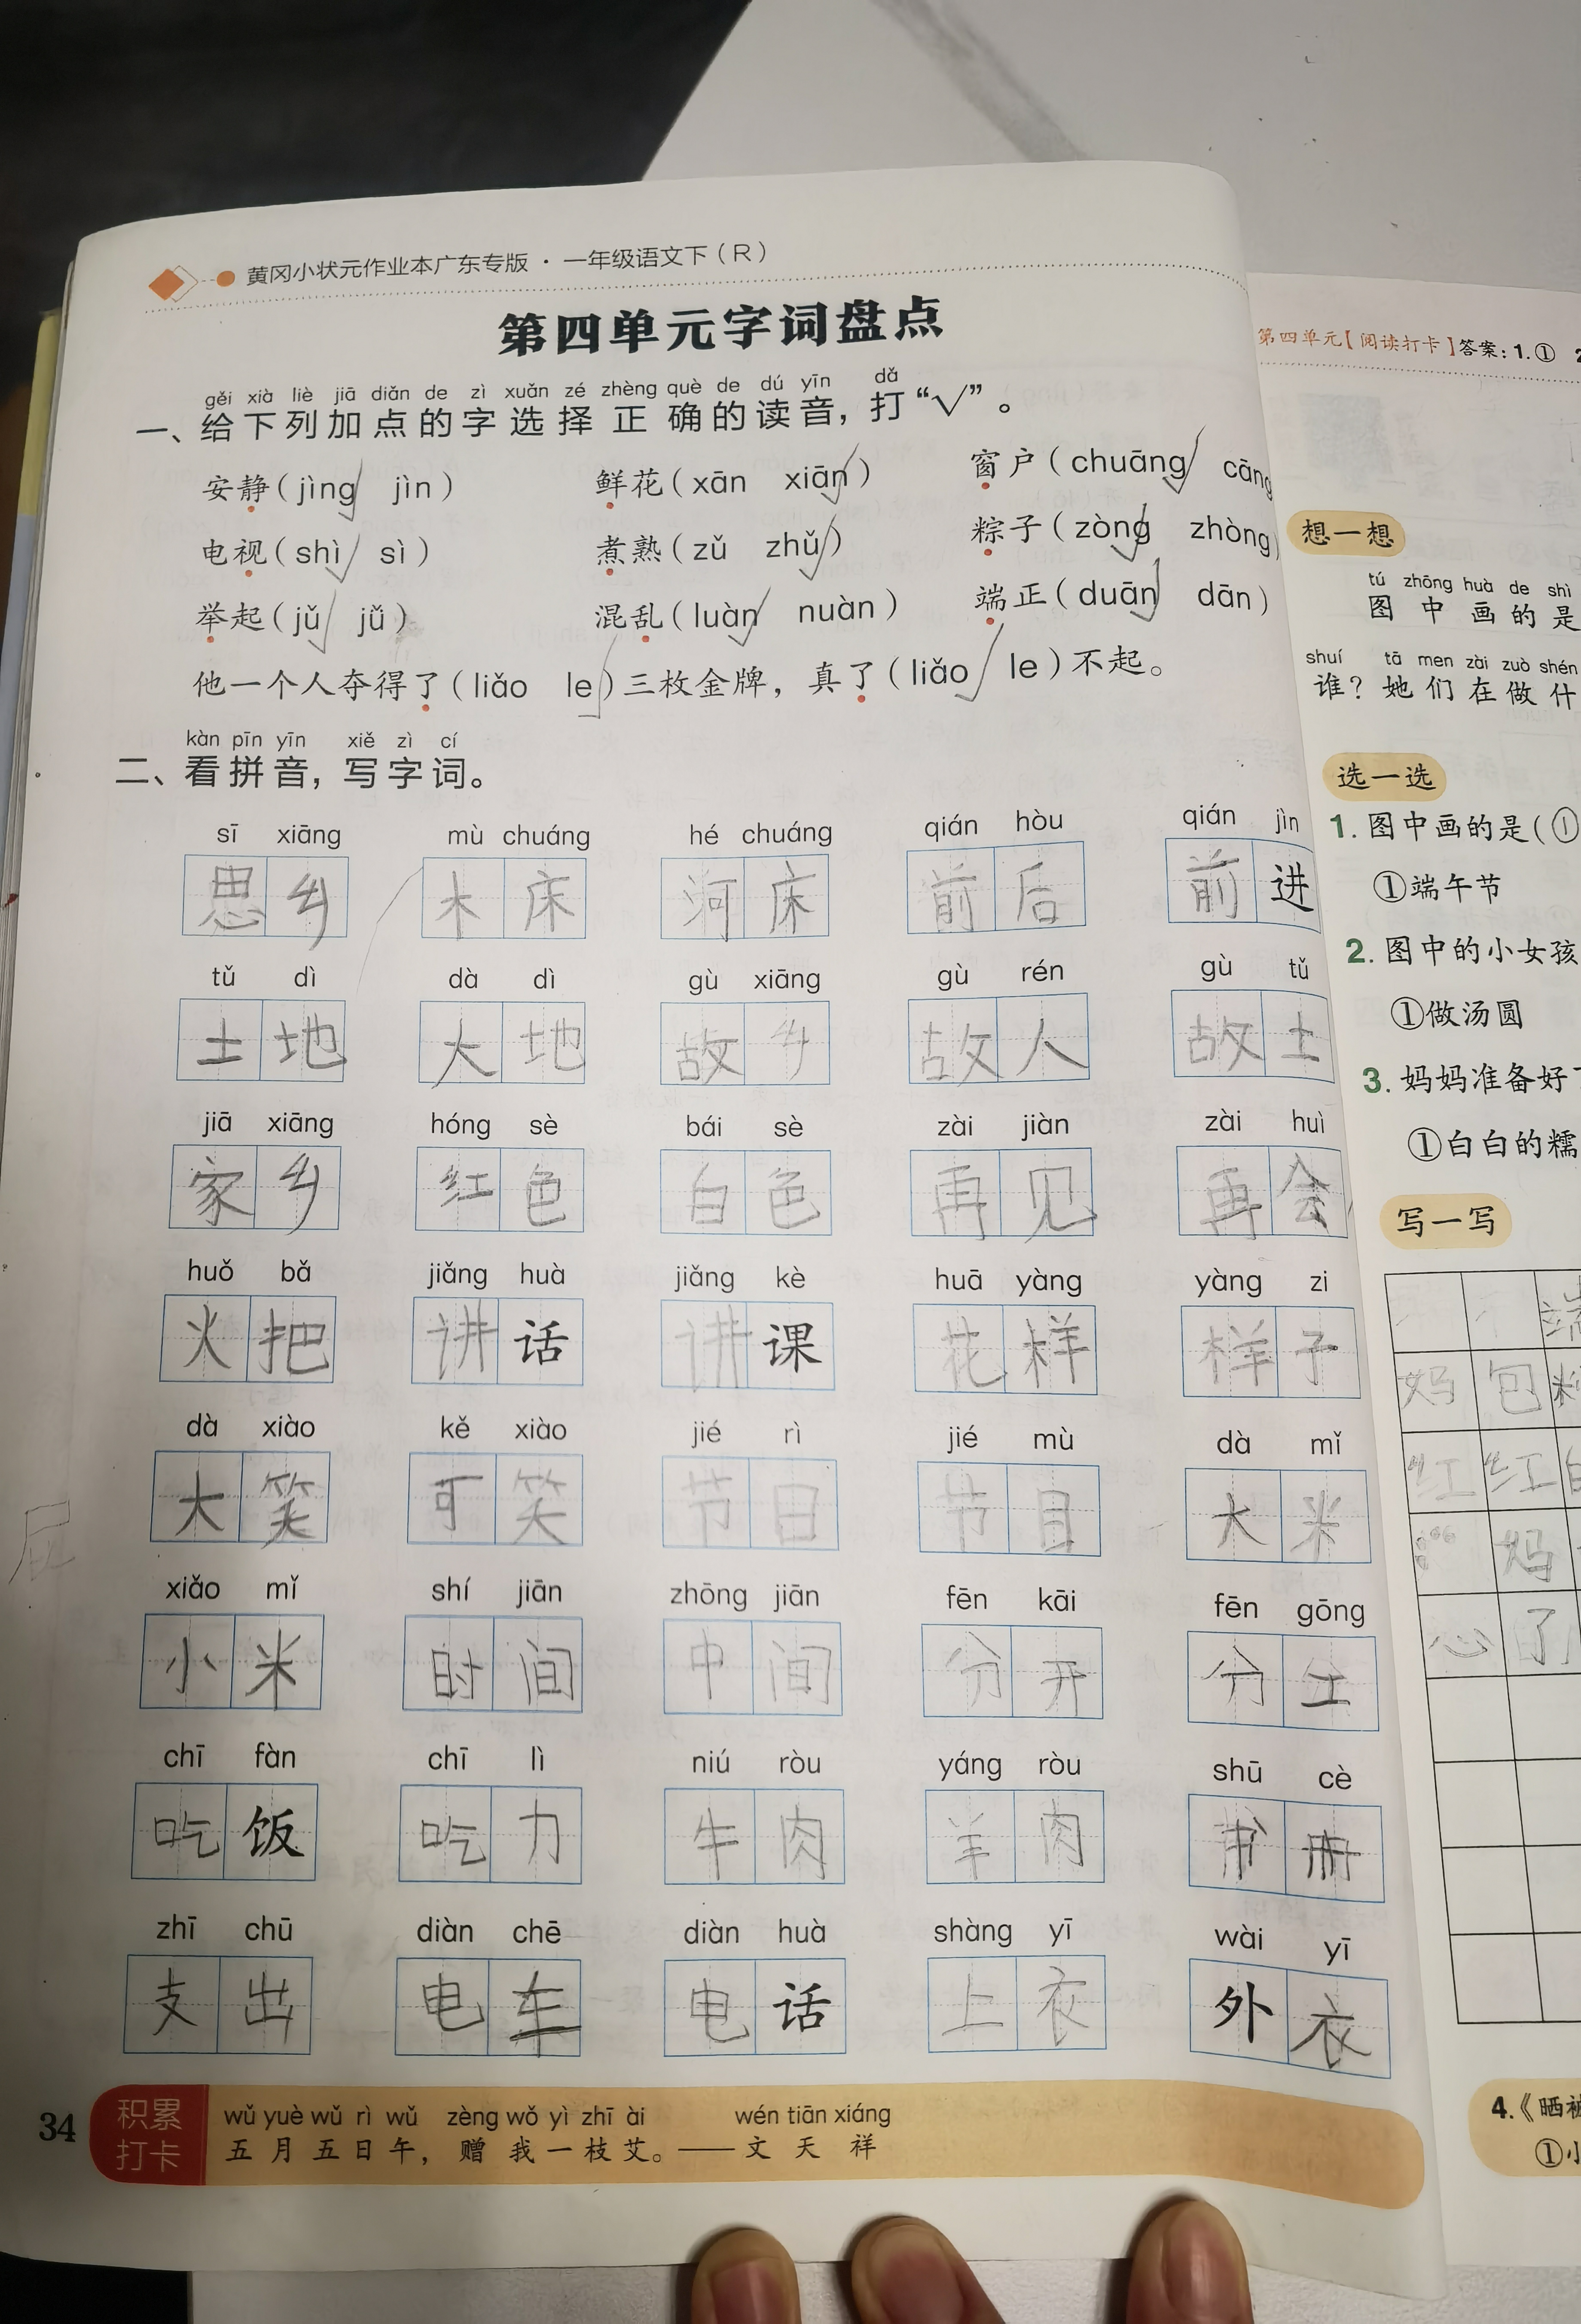 黄冈小状元作业本广东专版·一年级语文下（R）
第四单元字词盘点
gěi xià liè jiā diǎn de zì xuǎn zé zhèng què de dú yīn dǎ
一、给下列加点的字选择正确的读音，打“√”。
安静（jìng√ jìn） 鲜花（xān xiān√） 窗户（chuāng√ cāng
电视（shì√ sì） 煮熟（zǔ zhǔ√） 粽子（zòng√ zhòng）
举起（jǔ√ jǚ） 混乱（luàn√ nuàn） 端正（duān√ dān）
他一个人夺得了（liǎo le√）三枚金牌，真了（liǎo√ le）不起。
kàn pīn yīn xiě zì cí
二、看拼音，写字词。
sī xiāng mù chuáng hé chuáng qián hòu qián jìn
思乡 木床 河床 前后 前进
tǔ dì dà dì gù xiāng gù rén gù tǔ
土地 大地 故乡 故人 故土
jiā xiāng hóng sè bái sè zài jiàn zài huì
家乡 红色 白色 再见 再会
huǒ bǎ jiǎng huà jiǎng kè huā yàng yàng zi
火把 讲话 讲课 花样 样子
dà xiào kě xiào jié rì jié mù dà mǐ
大笑 可笑 节日 节目 大米
xiǎo mǐ shí jiān zhōng jiān fēn kāi fēn gōng
小米 时间 中间 分开 分工
chī fàn chī lì niú ròu yáng ròu shū cè
吃饭 吃力 牛肉 羊肉 书册
zhī chū diàn chē diàn huà shàng yī wài yī
支出 电车 电话 上衣 外衣
34
积累
打卡
wǔ yuè wǔ rì wǔ zèng wǒ yì zhī ài wén tiān xiáng
五月五日午，赠我一枝艾。——文天祥
第四单元【阅读打卡】答案：1.①
想一想
tú zhōng huà de shì
图中画的是
shuí tā men zài zuò shén
谁？她们在做什
选一选
1. 图中画的是（①
①端午节
2. 图中的小女孩
①做汤圆
3. 妈妈准备好
①白白的糯
写一写
端
妈包
红红
妈
心了
4.《晒被
①小